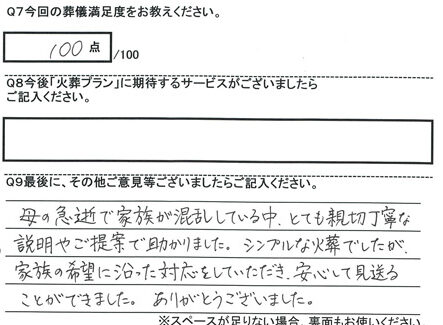 Q7今回の葬儀満足度をお教えください。
100点/100
Q8今後「火葬プラン」に期待するサービスがございましたら
ご記入ください。
Q9最後に、その他ご意見等ございましたらご記入ください。
母の急逝で家族が混乱している中、とても親切丁寧な
説明やご提案で助かりました。シンプルな火葬でしたが、
家族の希望に沿った対応をしていただき、安心して見送る
ことができました。ありがとうございました。
※スペースが足りない場合、裏面もお使いください